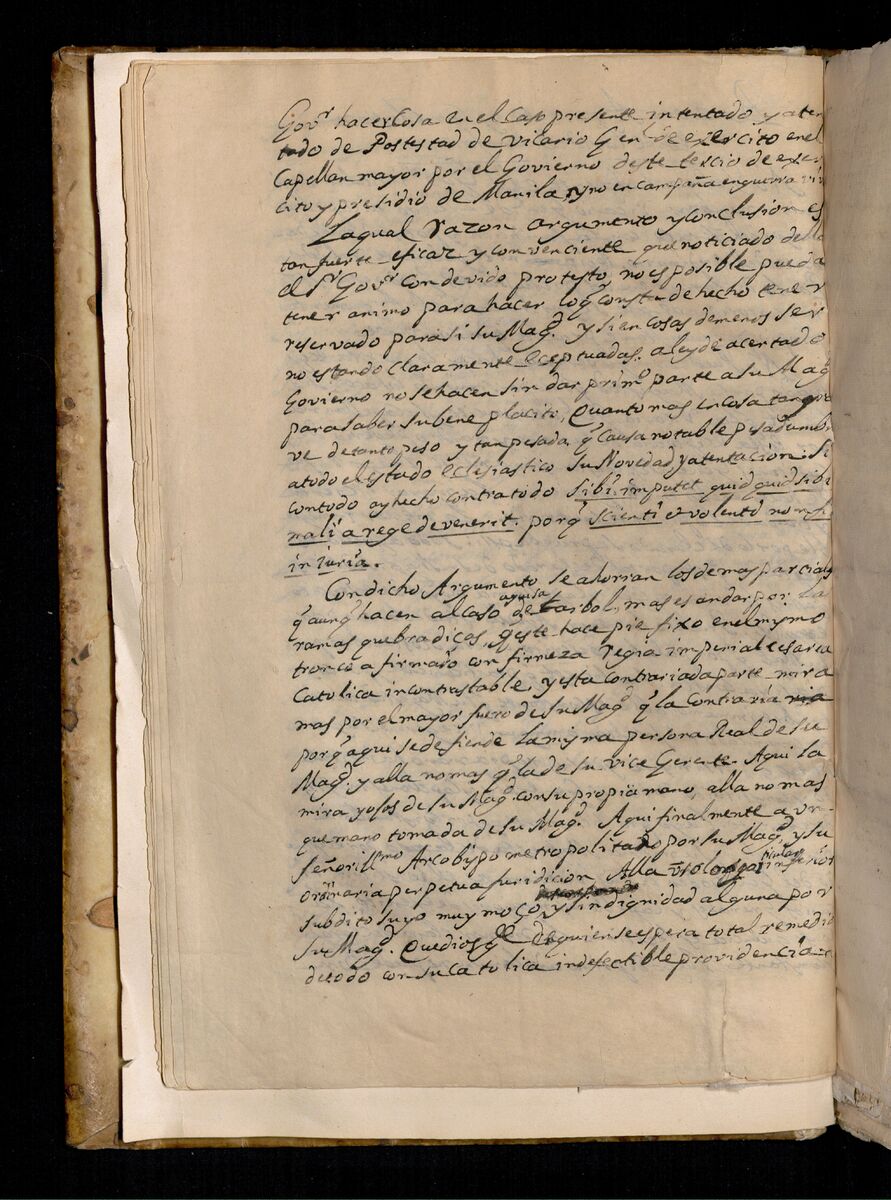 Govr. hacer Cosa en el Caso presente intentado y aten
tado de Postestad de vicario Gen. de exercito en el
Capellan mayor por el Govierno deste tercio de exer
cito y presidio de Manila, y no en campaña en guerra viv
La qual razon argumento y conclusion es
tan fuerte eficaz y convenciente que noticiado della
el Sr. Govr. con devido protesto, no es posible pueda
tener animo para hacer loq consta de hecho tener
reservado para si su Magd. y si en cosas de menos ser
no estando claramente eceptuadas, a ley de acertado
Govierno no se hacen sin dar primo. parte a Su Magd.
para saber su bene placito, Quanto mas en cosa tan gra
ve de tanto peso y tan pesada q causa notable pesadumbre
a todo el estado eclesiastico su Novedad y atentacion. Si
con todo ay hecho contra todo sibi imputet quid quid sibi
mali a rege devenerit. porq scienti et volenti non fit
iniuria.
Con dicho Argumento se ahorran los demas parciales
q aunq hacen al caso aguisa de tarbol, mas es andar por las
ramas quebradiças, q este hace pie fixo en el mismo
tronco afirmado con firmeza regia imperial cesarea
Catolica incontrastable, y esta contrariada parte mira
mas por el mayor fuero de su Magd. q la contraria
porq aqui se defiende la misma persona Real de su
Magd. y alla no mas q la de su vice Gerente. Aqui la
mira y ojos de su Magd. con su propia mano, alla no mas
que mano tomada de su Magd. Aqui finalmente a un
señor Illmo. Arcobispo metropolitado por su Magd. y su
ordinaria perpetua juridicion Alla un solo inferior
subdito suyo muy moço, y sin dignidad alguna por
su Magd. Que dios gde. De quien se espera total remedio
de todo con su catolica indefectible providencia